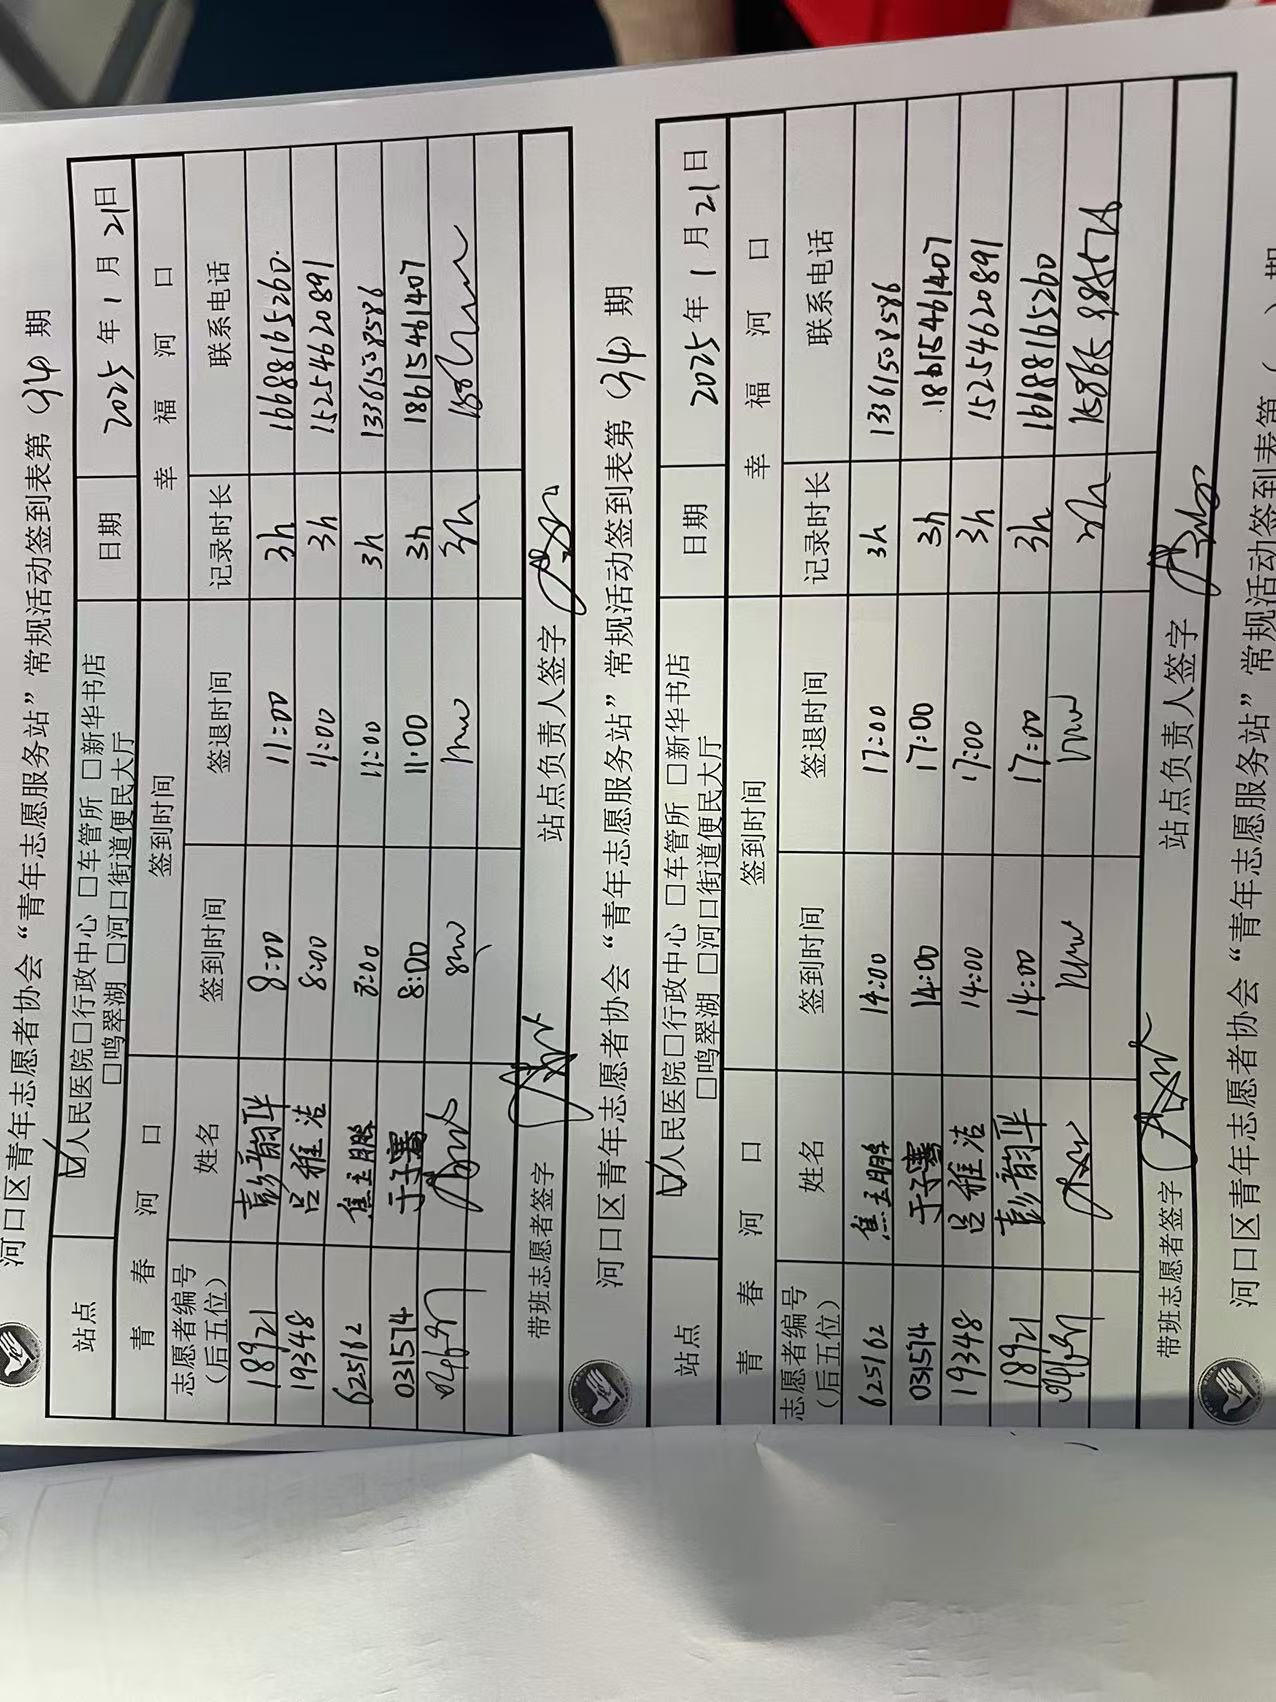 河口区青年志愿者协会“青年志愿服务站”常规活动签到表第(34)期
站点 ☑人民医院□行政中心 □车管所 □新华书店 日期 2025年1月21日
□鸣翠湖 □河口街道便民大厅
青 春 河 口 签到时间 幸 福 河 口
志愿者编号 姓名 签到时间 签退时间 记录时长 联系电话
(后五位)
18921 彭韵华 8:00 11:00 3h 16688165260
19348 吕雅洁 8:00 11:00 3h 15254620891
625162 焦玉鹏 8:00 11:00 3h 13361508586
031574 于子骞 8:00 11:00 3h 18615461407
3h
带班志愿者签字 站点负责人签字
河口区青年志愿者协会“青年志愿服务站”常规活动签到表第(34)期
站点 ☑人民医院□行政中心 □车管所 □新华书店 日期 2025年1月21日
□鸣翠湖 □河口街道便民大厅
青 春 河 口 签到时间 幸 福 河 口
志愿者编号 姓名 签到时间 签退时间 记录时长 联系电话
(后五位)
625162 焦玉鹏 14:00 17:00 3h 13361508586
031574 于子骞 14:00 17:00 3h 18615461407
19348 吕雅洁 14:00 17:00 3h 15254620891
18921 彭韵华 14:00 17:00 3h 16688165260
3h
带班志愿者签字 站点负责人签字
河口区青年志愿者协会“青年志愿服务站”常规活动签到表第( )期